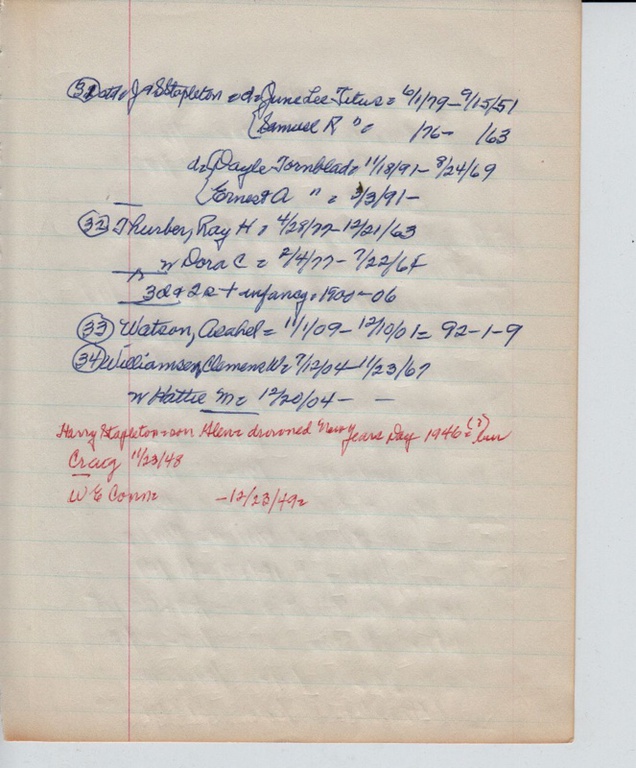 (31) J + Stapleton = d = June Lee Titus = 6/1/79 - 9/15/51
{Samuel R " = /76 - /63
d = {Dayle Tornblad = 11/18/91 - 8/24/69
{Ernest A " = 3/3/91 -
(32) Thurber, Ray H = 4/28/77 - 12/21/63
w Dora C = 2/4/77 - 7/22/65
3d + 2s + infancy = 1900 - 06
(33) Watson, Asahel = 11/1/09 - 12/10/01 = 92-1-9
(34) Williamsen, Clemens W = 7/12/04 - 11/23/67
w Hattie M = 12/20/04 - -
Harry Stapleton = son Glen = drowned New Years Day 1946 = (?)
Craig 11/23/48
W E Conn = -12/23/49 =